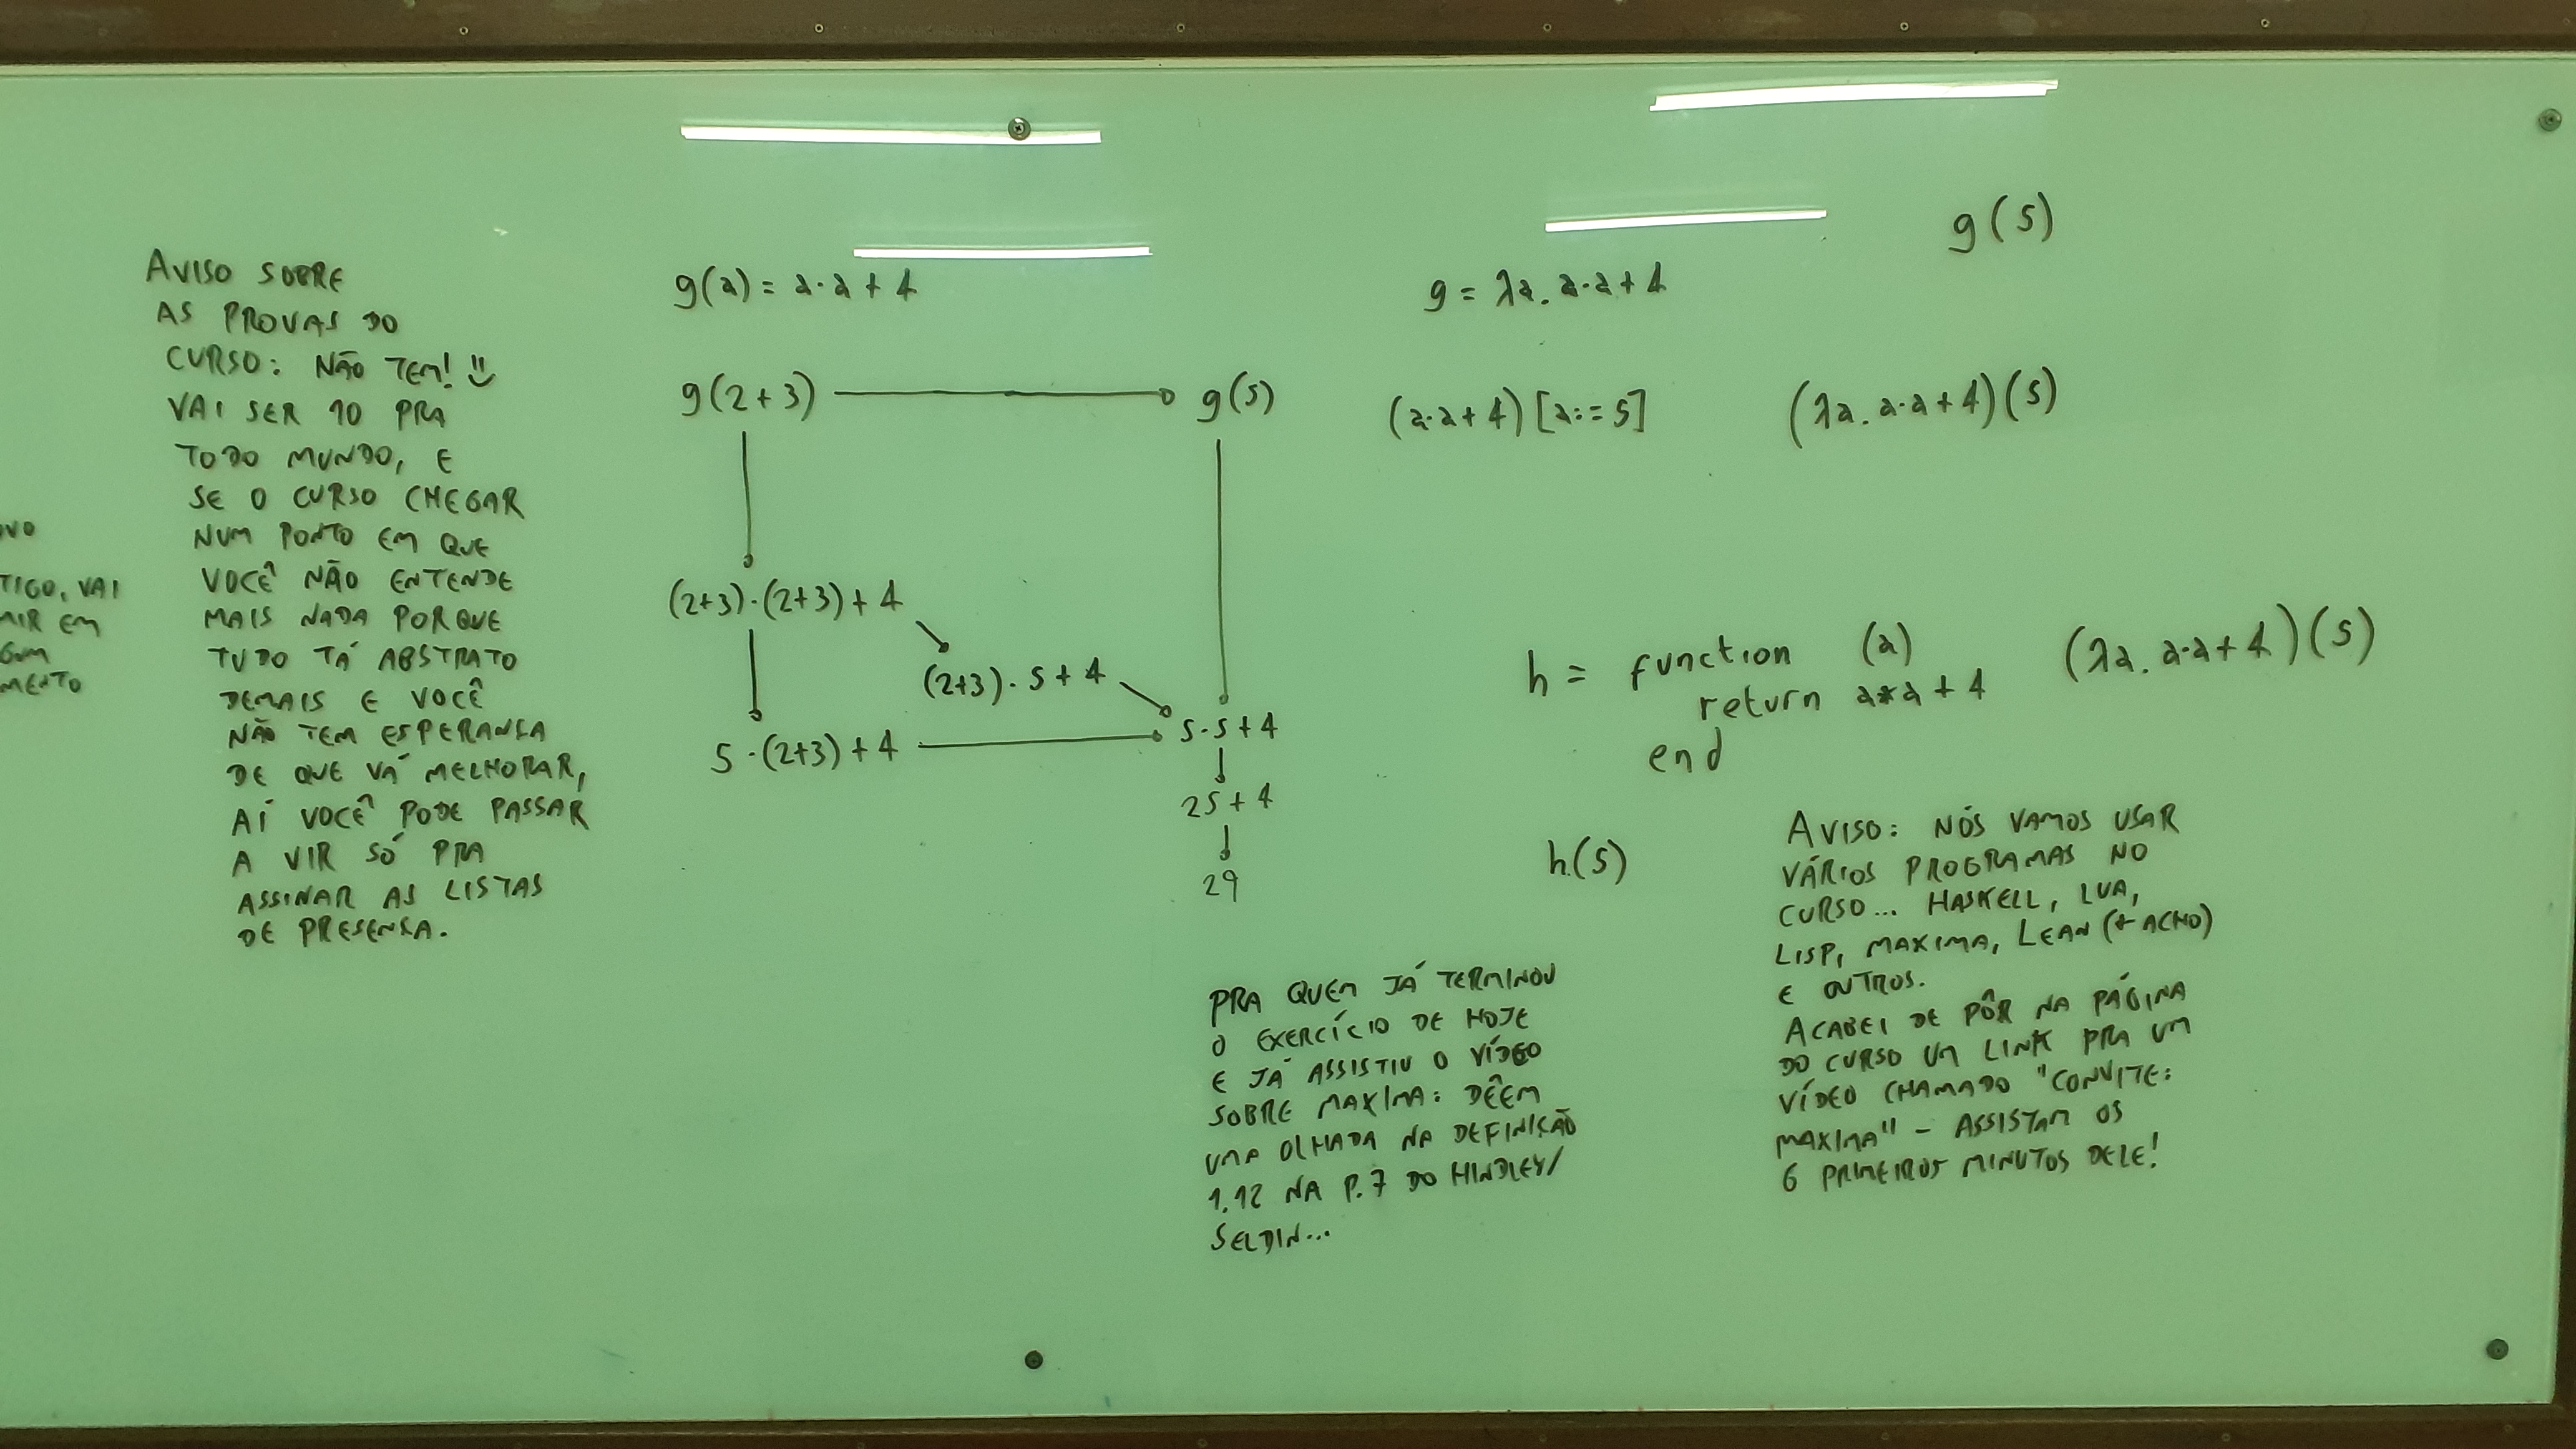 TIGO, VAI
EM
AVISO SOBRE
AS PROVAS DO
CURSO: NÃO TEM! :)
VAI SER 10 PRA
TODO MUNDO, E
SE O CURSO CHEGAR
NUM PONTO EM QUE
VOCÊ NÃO ENTENDE
MAIS NADA PORQUE
TUDO TÁ ABSTRATO
DEMAIS E VOCÊ
NÃO TEM ESPERANÇA
DE QUE VÁ MELHORAR,
AÍ VOCÊ PODE PASSAR
A VIR SÓ PRA
ASSINAR AS LISTAS
DE PRESENÇA.
g(a) = a·a + 4
g(2+3) → g(5)
(2+3)·(2+3) + 4
(2+3)·5 + 4
5·(2+3) + 4 → 5·5 + 4
25 + 4
29
g(5)
g = λa. a·a + 4
(a·a + 4)[a:=5] (λa. a·a + 4)(5)
h = function (a)
return a*a + 4
end
(λa. a·a + 4)(5)
h(5)
PRA QUEM JÁ TERMINOU
O EXERCÍCIO DE HOJE
E JÁ ASSISTIU O VÍDEO
SOBRE MAXIMA: DÊEM
UMA OLHADA NA DEFINIÇÃO
1.12 NA P.7 DO HINDLEY/
SELDIN...
AVISO: NÓS VAMOS USAR
VÁRIOS PROGRAMAS NO
CURSO... HASKELL, LUA,
LISP, MAXIMA, LEAN (← ACHO)
E OUTROS.
ACABEI DE PÔR NA PÁGINA
DO CURSO UM LINK PRA UM
VÍDEO CHAMADO "CONVITE:
MAXIMA" - ASSISTAM OS
6 PRIMEIROS MINUTOS DELE!